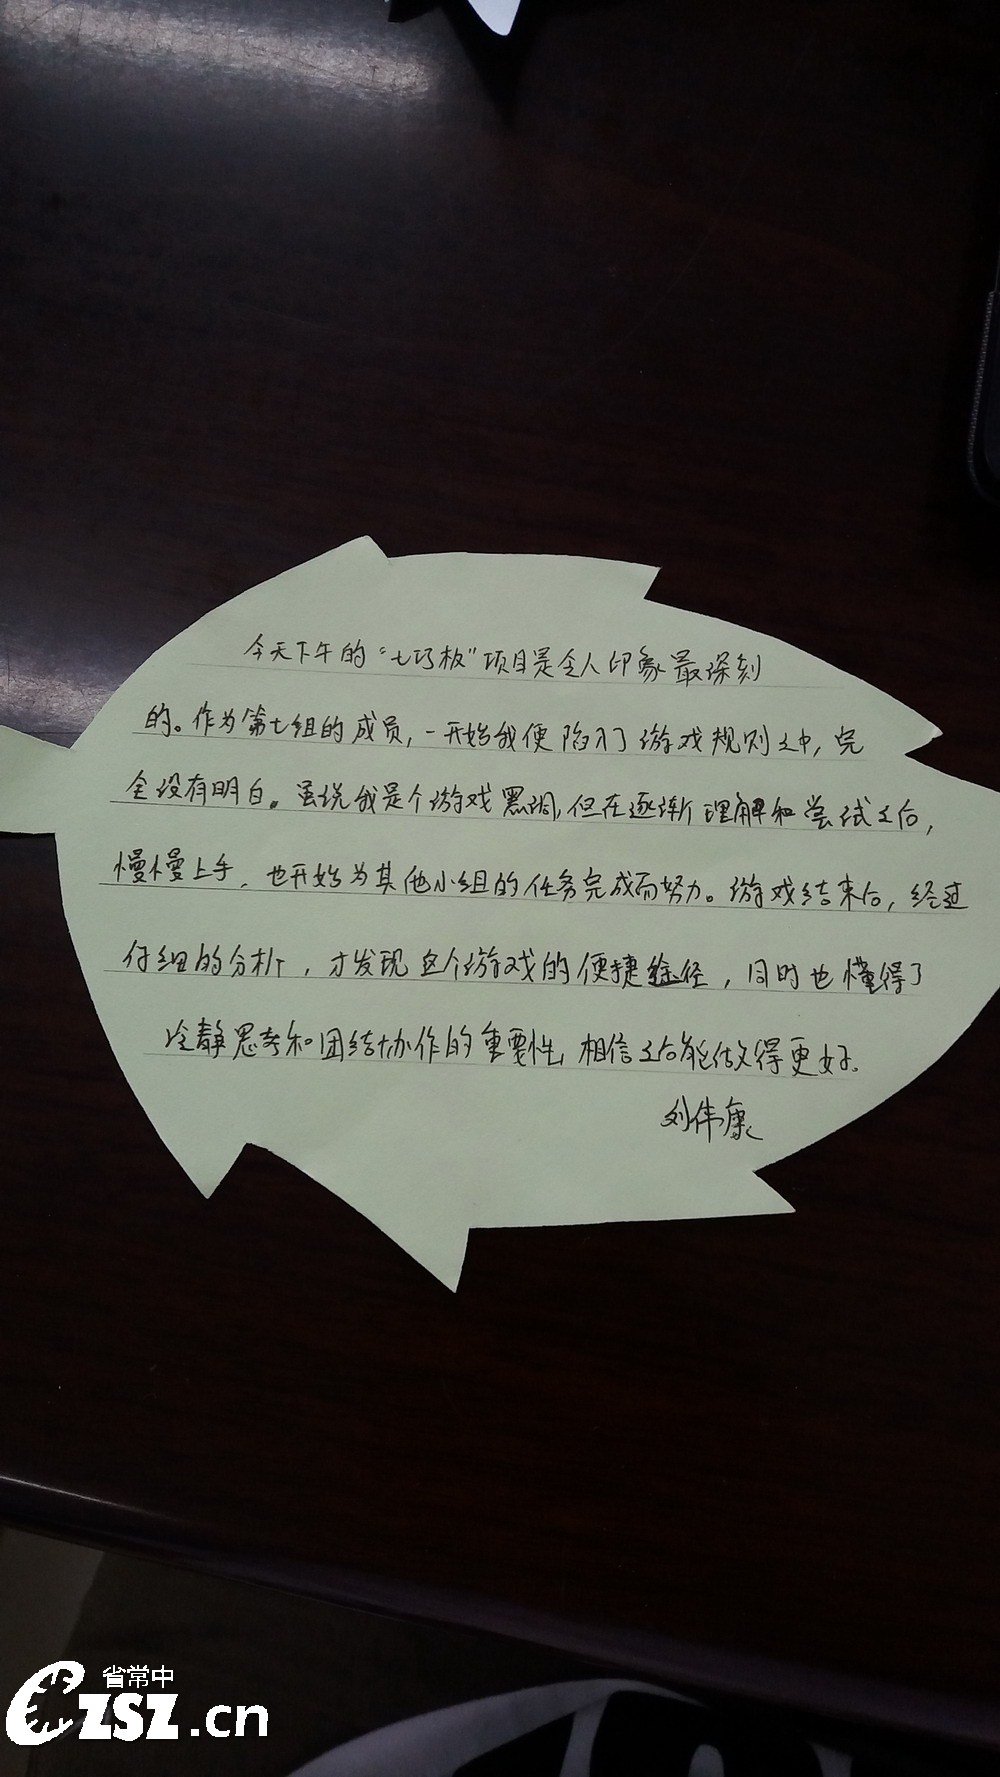 今天下午的“七巧板”项目是令人印象最深刻
的。作为第七组的成员，一开始我便陷入了游戏规则之中，完
全没有明白。虽说我是个游戏黑洞，但在逐渐理解和尝试之后，
慢慢上手，也开始为其他小组的任务完成而努力。游戏结束后，经过
仔细的分析，才发现这个游戏的便捷途径，同时也懂得了
冷静思考和团结协作的重要性，相信之后能做得更好。
刘伟康
省常中
CZSZ.cn